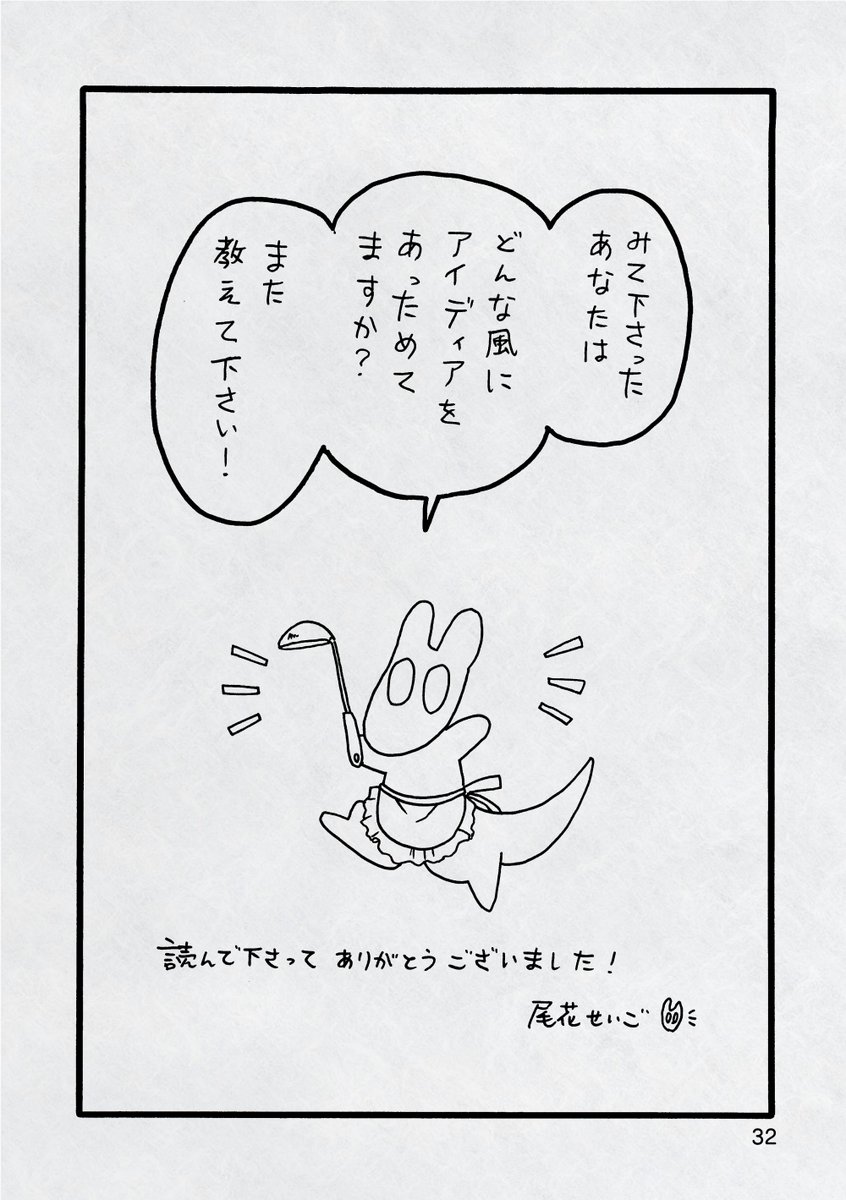 みて下さった
あなたは
どんな風に
アイディアを
あっためて
ますか?
また
教えて下さい!
読んで下さって ありがとうございました!
尾花せいご
32